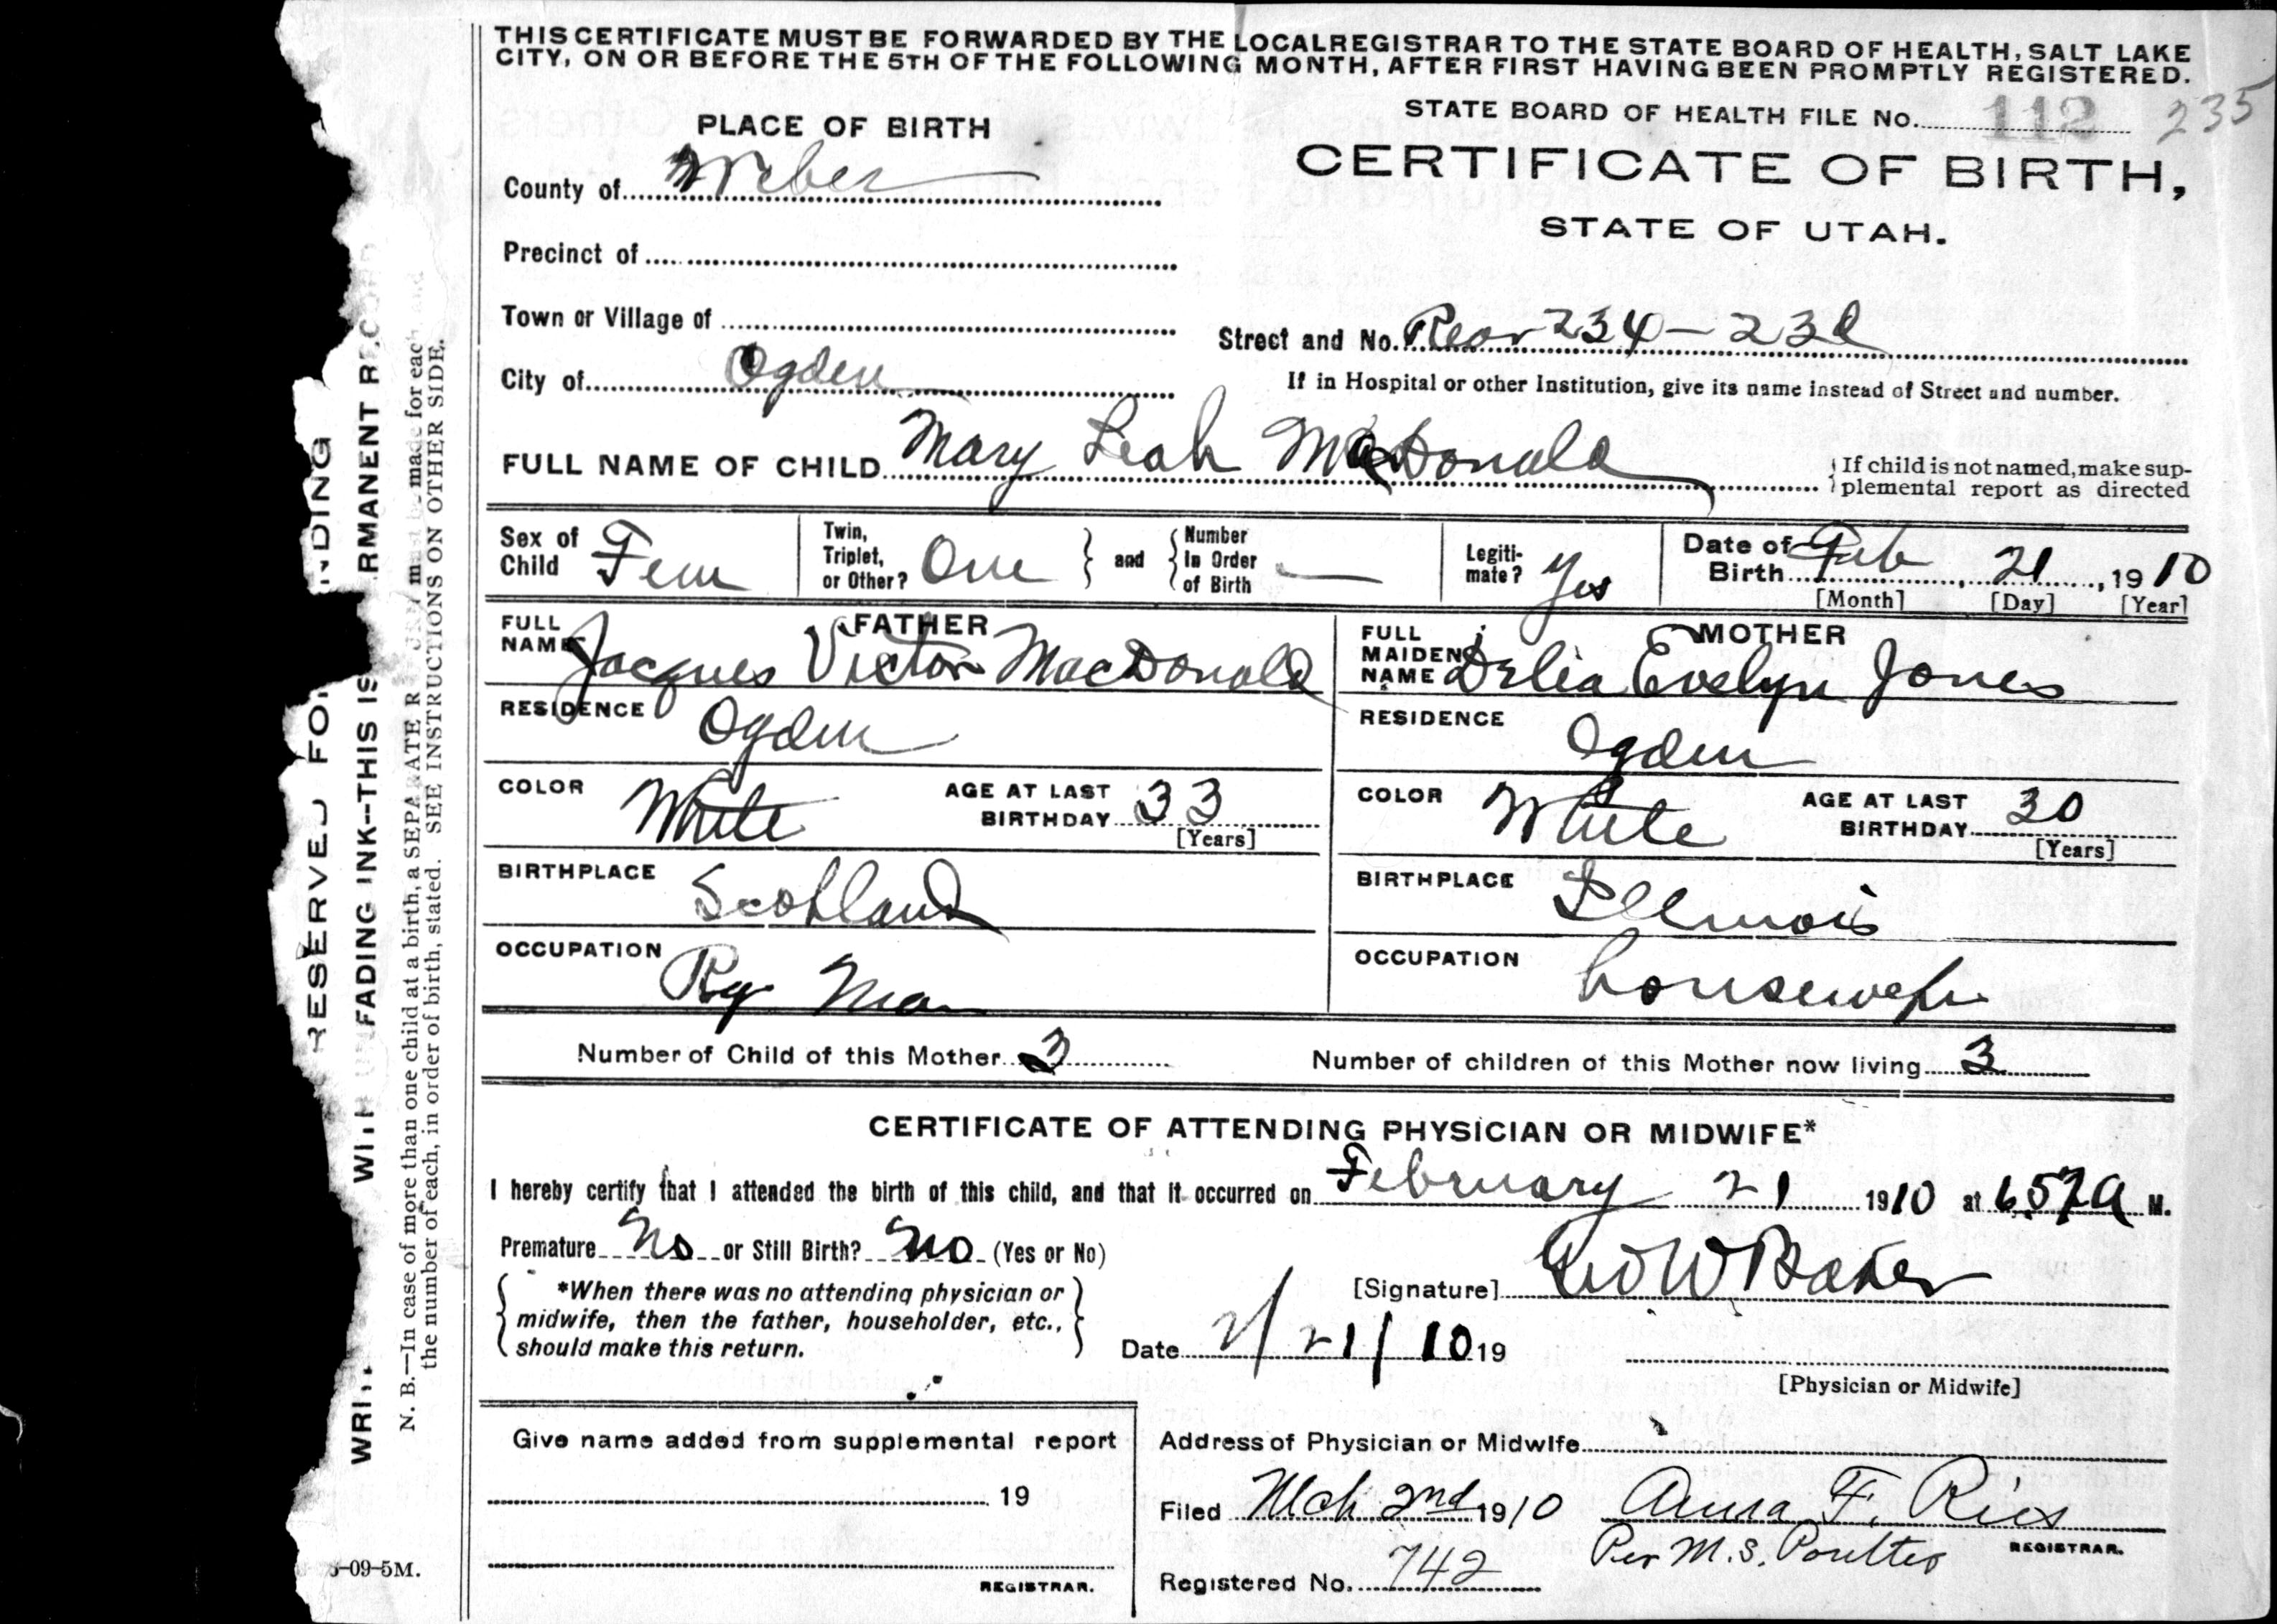 THIS CERTIFICATE MUST BE FORWARDED BY THE LOCAL REGISTRAR TO THE STATE BOARD OF HEALTH, SALT LAKE
CITY, ON OR BEFORE THE 5TH OF THE FOLLOWING MONTH, AFTER FIRST HAVING BEEN PROMPTLY REGISTERED.
STATE BOARD OF HEALTH FILE No. 112 235
PLACE OF BIRTH
CERTIFICATE OF BIRTH,
STATE OF UTAH.
County of Weber
Precinct of
Town or Village of
Street and No. Rear 234-23d
City of Ogden
If in Hospital or other Institution, give its name instead of Street and number.
FULL NAME OF CHILD Mary Leah MacDonald
If child is not named, make sup-
plemental report as directed
Sex of Child Fem
Twin, Triplet, or Other? One and Number In Order of Birth —
Legiti-mate? Yes
Date of Birth Feb, 21, 1910
[Month] [Day] [Year]
FATHER
FULL NAME Jacques Victor MacDonald
RESIDENCE Ogden
COLOR White AGE AT LAST BIRTHDAY 33
[Years]
BIRTHPLACE Scotland
OCCUPATION Ry Man
MOTHER
FULL MAIDEN NAME Delia Evelyn Jones
RESIDENCE Ogden
COLOR White AGE AT LAST BIRTHDAY 30
[Years]
BIRTHPLACE Illinois
OCCUPATION housewife
Number of Child of this Mother 3 Number of children of this Mother now living 3
CERTIFICATE OF ATTENDING PHYSICIAN OR MIDWIFE*
I hereby certify that I attended the birth of this child, and that it occurred on February 21 1910 at 6.57A M.
Premature No or Still Birth? No (Yes or No)
*When there was no attending physician or
midwife, then the father, householder, etc.,
should make this return.
[Signature] Geo W Baker
Date 2/21/10 19
[Physician or Midwife]
Give name added from supplemental report
19
REGISTRAR.
Address of Physician or Midwife
Filed Mch 2nd 1910 Anna F. Ries
Per M. S. Poulter REGISTRAR.
Registered No. 742
RESERVED FOR NDING
WRI WITH FADING INK--THIS IS RMANENT RECORD
N. B.—In case of more than one child at a birth, a SEPARATE R must be made for each and
the number of each, in order of birth, stated. SEE INSTRUCTIONS ON OTHER SIDE.
-09-5M.